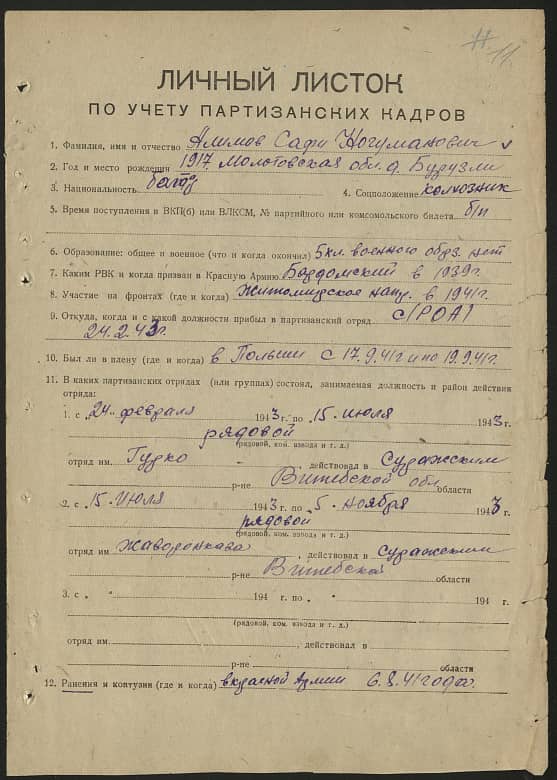 11.
ЛИЧНЫЙ ЛИСТОК
ПО УЧЕТУ ПАРТИЗАНСКИХ КАДРОВ
1. Фамилия, имя и отчество Алимов Сафи Ногуманович
2. Год и место рождения 1917. Молотовская обл. д.
3. Национальность 4. Соцположение колхозник
5. Время поступления в ВКП(б) или ВЛКСМ, № партийного или комсомольского билета б/п
6. Образование: общее и военное (что и когда окончил) 5 кл. военного обрз. нет
7. Каким РВК и когда призван в Красную Армию Бардомский в 1939г.
8. Участие на фронтах (где и когда) Житомирское напр. в 1941г.
9. Откуда, когда и с какой должности прибыл в партизанский отряд с/РОА/
24.2.43г.
10. Был ли в плену (где и когда) в Польши с 17.9.41г и по 19.9.41г.
11. В каких партизанских отрядах (или группах) состоял, занимаемая должность и район действия
отряда:
1. с „24" февраля 1943 г. по „15" июля 1943 г.
рядовой
(рядовой, ком. взвода и т. д.)
отряд им. Гудко , действовал в Суражским
р-не Витебской обл области
2. с „15" июля 1943 г. по „5" ноября 1943 г.
рядовой
(рядовой, ком. взвода и т. д.)
отряд им. Жаворонкава , действовал в Суражским
р-не Витебской области
3. с „ " 194 г. по „ " 194 г.
(рядовой, ком. взвода и т. д.)
отряд им. , действовал в
р-не области
12. Ранения и контузии (где и когда) в красной Армии 6.8.41 года.